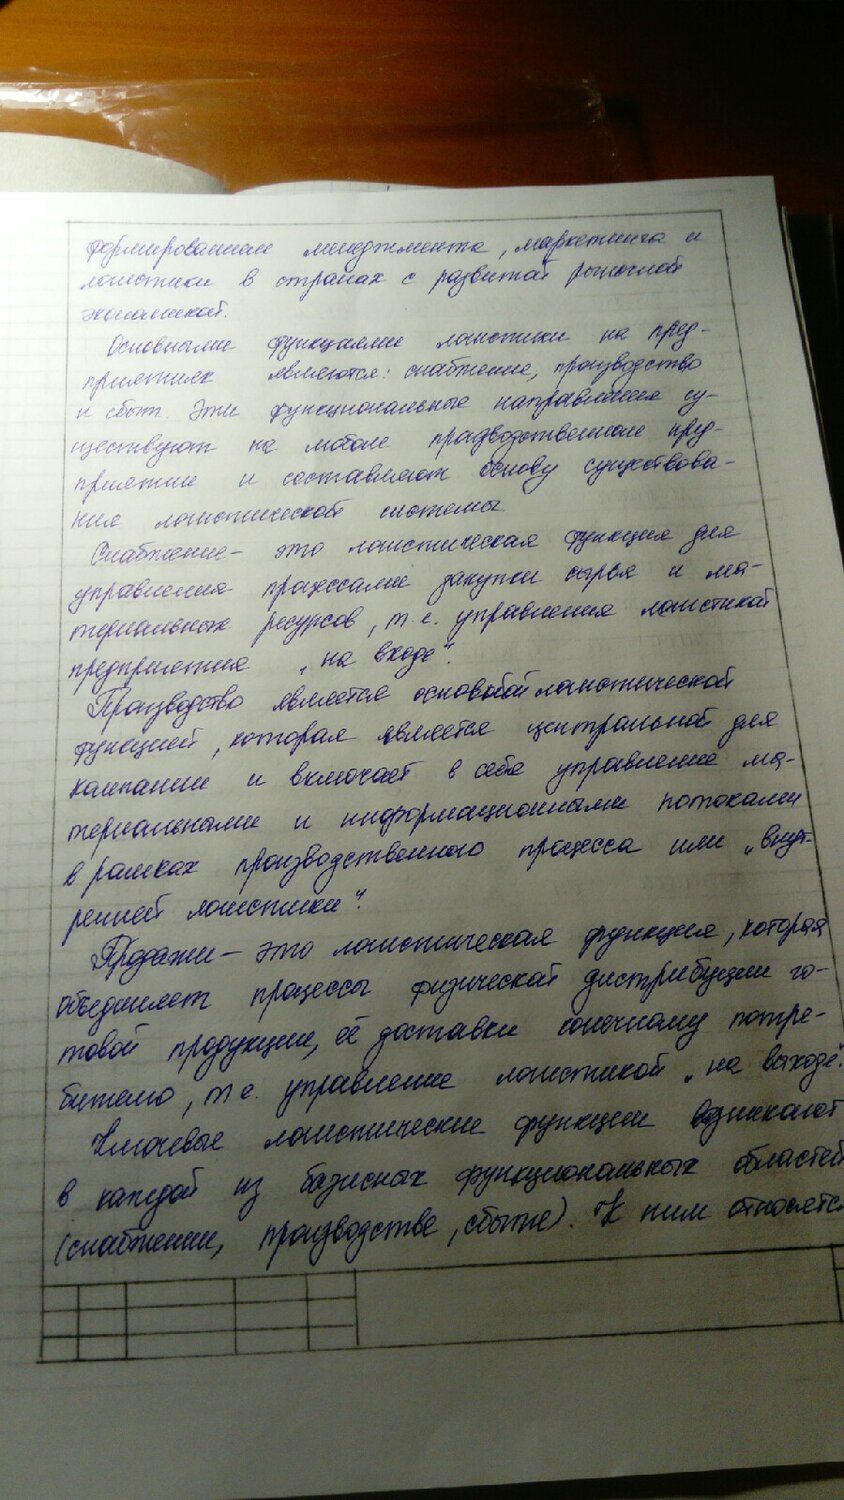 формированием менеджмента, маркетинга и
логистики в странах с развитой рыночной
экономикой.
Основными функциями логистики на пред-
приятиях являются: снабжение, производство
и сбыт. Эти функциональные направления су-
ществуют на любом производственном пред-
приятии и составляют основу существова-
ния логистической системы.
Снабжение- это логистическая функция для
управления процессами закупки сырья и ма-
териальных ресурсов, т.е. управления логистикой
предприятия „на входе".
Производство является основовой логистической
функцией, которая является центральной для
компании и включает в себя управление ма-
териальными и информационными потоками
в рамках производственного процесса или „внут-
ренней логистики".
Продажи- это логистическая функция, которая
объединяет процессы физической дистрибуции го-
товой продукции, её доставки конечному потре-
бителю, т.е. управление логистикой „на выходе".
Ключевые логистические функции возникают
в каждой из базисных функциональных областей
(снабжении, производстве, сбыте). К ним относятся